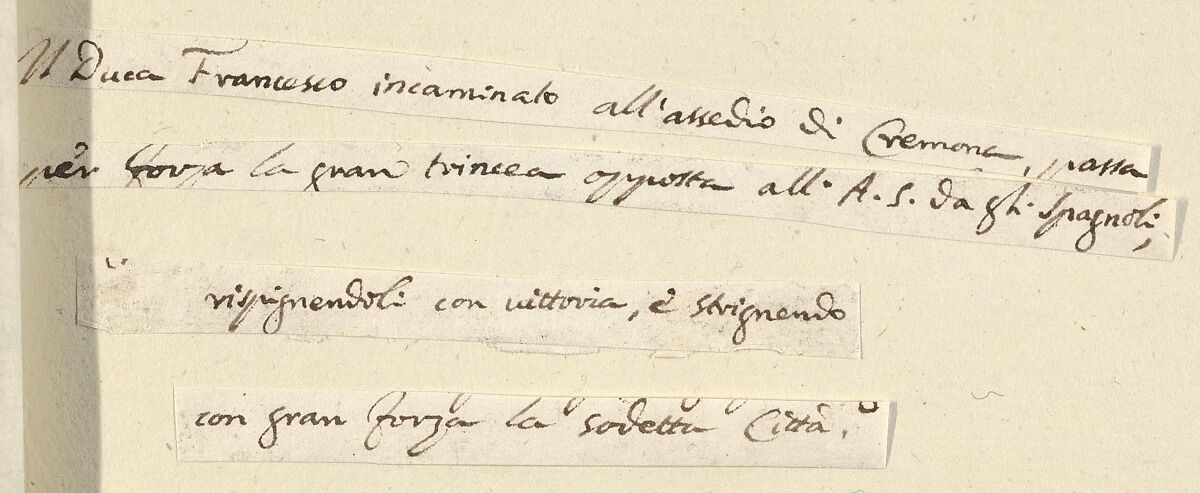 Il Duca Francesco incaminato all'assedio di Cremona, passa
per forza la gran trincea opposta all' A. S. da gli Spagnoli,
rispignendoli con vittoria, è strignendo
con gran forza la sodetta Città.